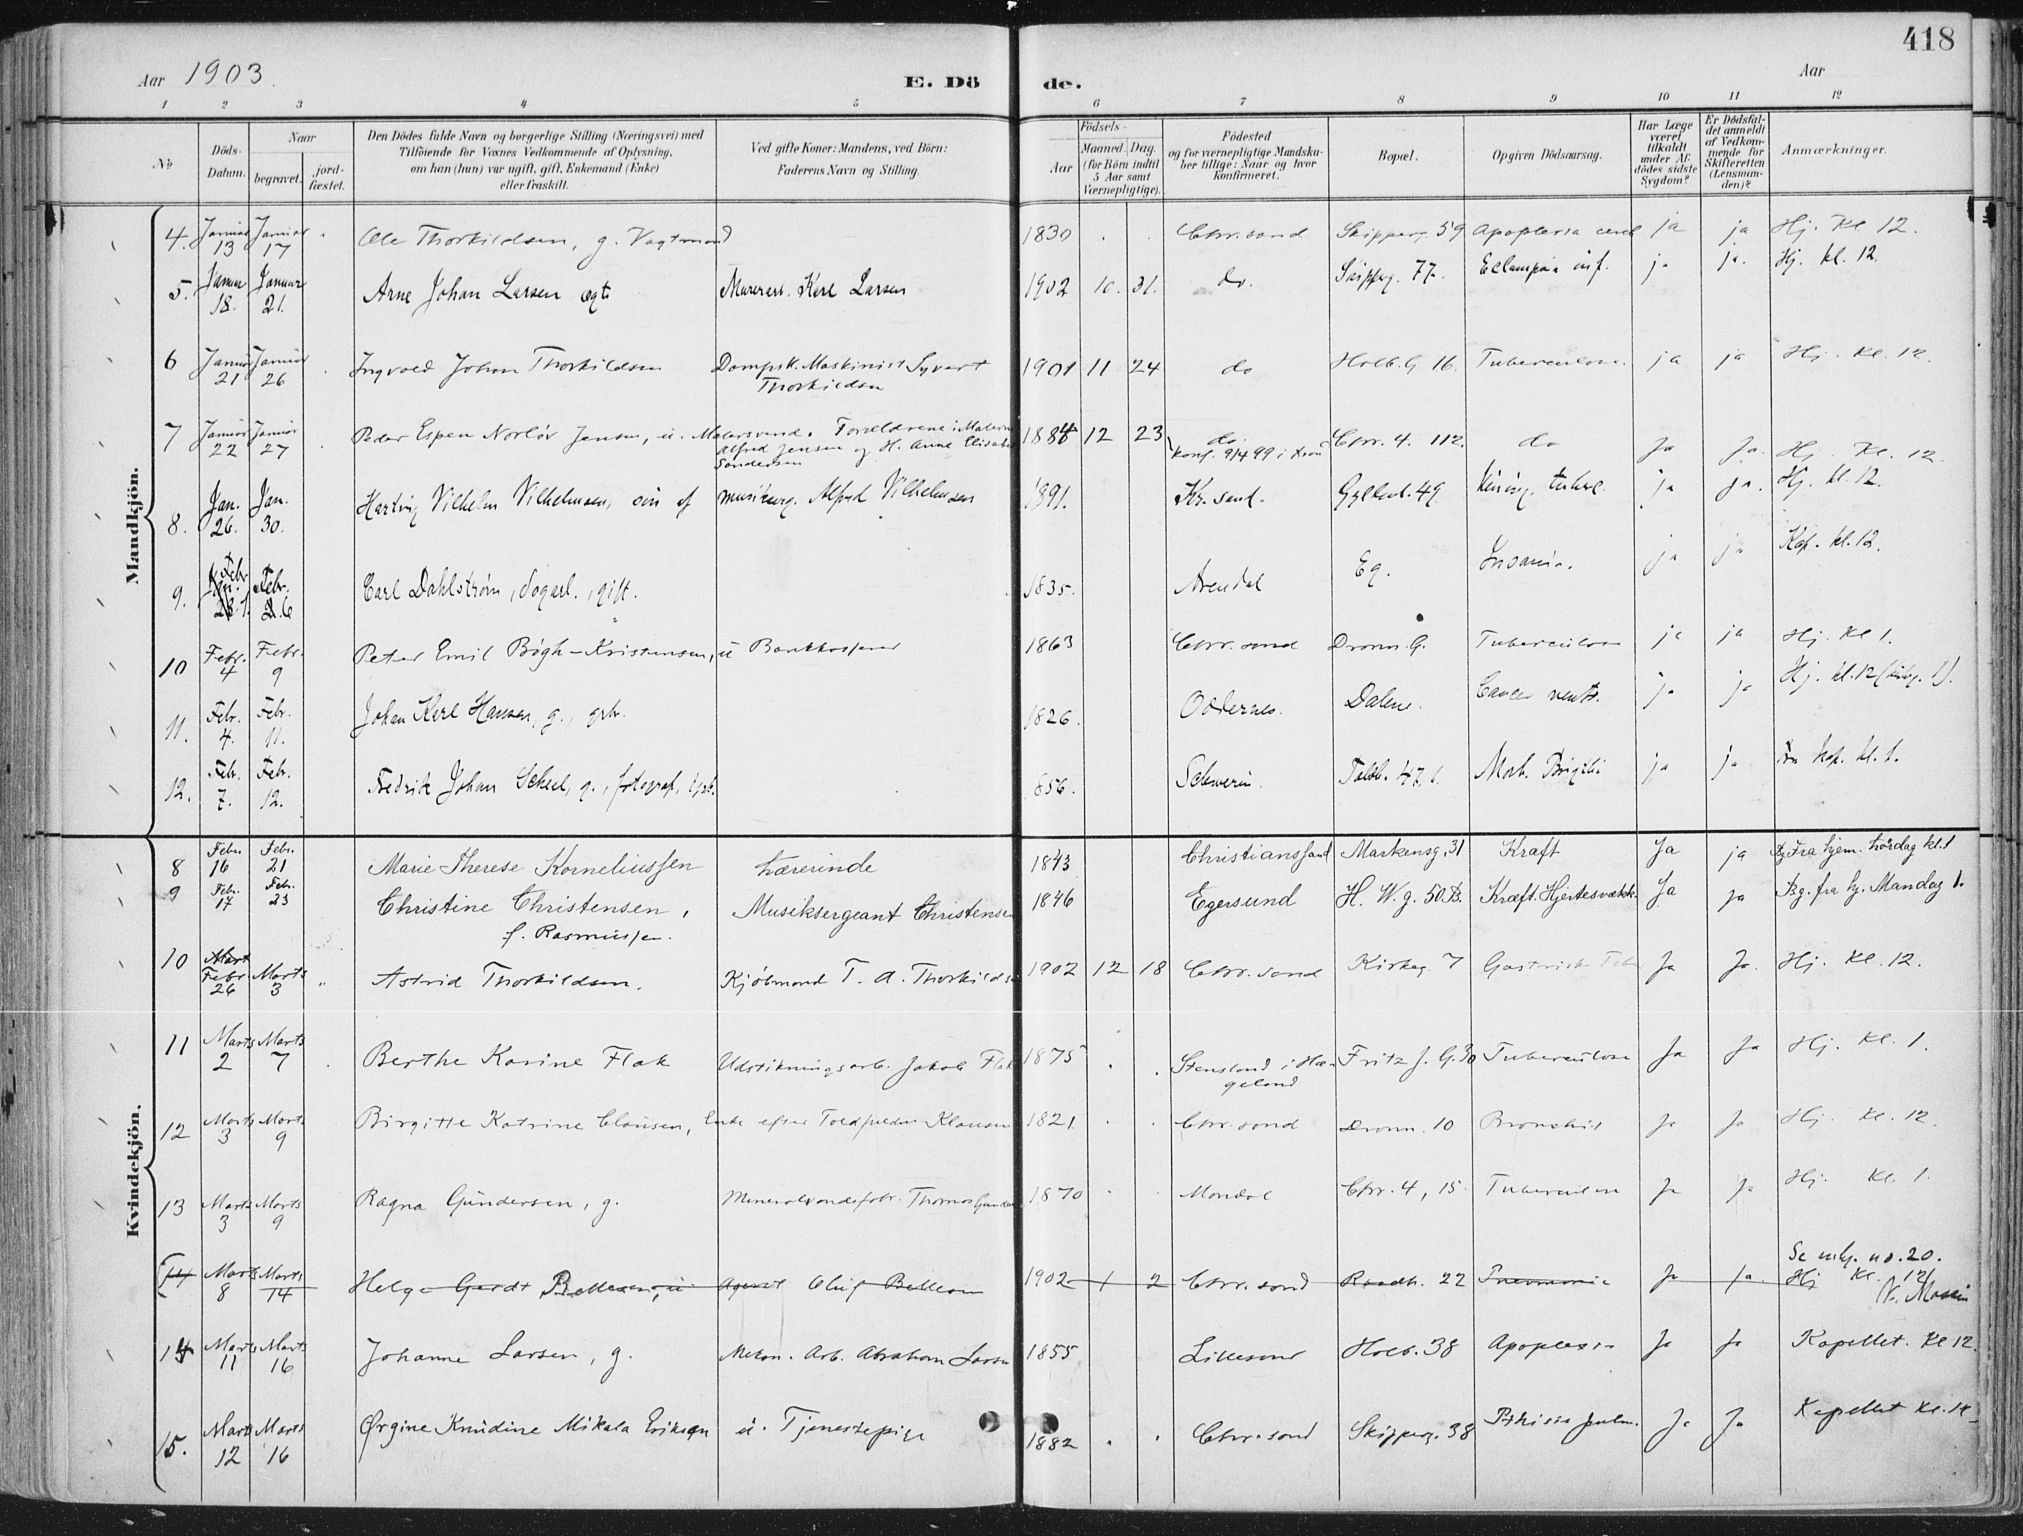 418
Aar 1903.
E. Dö de.
Aar
1 2 3 4 5 6 7 8 9 10 11 12
No
Döds-Datum.
Naar
begravet.
jord-fæstet.
Den Dödes fulde Navn og borgerlige Stilling (Næringsvei) med
Tilföiende for Voxnes Vedkommende af Oplysning,
om han (hun) var ugift, gift, Enkemand (Enke)
eller fraskilt.
Ved gifte Koner: Mandens, ved Börn:
Faderens Navn og Stilling.
Födsels-
Aar
Maaned. Dag.
(for Börn indtil
5 Aar samt
Værnepligtige).
Födested
og for værnepligtige Mandska-
ber tillige: Naar og hvor
konfirmeret.
Bopæl.
Opgiven Dödsaarsag.
Har Læge
været
tilkaldt
under Af-
dödes sidste
Sygdom?
Er Dödsfal-
det anmeldt
af Vedkom-
mende for
Skifteretten
(Lensman-
den)?
Anmærkninger.
Mandkjön.
4. Januar 13 Januar 17 Ole Thorkildsen, g. Vagtmand 1830 Chr.sand Skipperg. 59 Apoplexia ja ja Hj. Kl 12.
5. Januar 18. Januar 21. Arne Johan Larsen ægte Murersv. Karl Larsen 1902 10. 31. do. Skipperg. 77. Eclampsia inf. ja ja. Hj. kl. 12.
6 Januar 21 Januar 26 Ingvald Johan Thorkildsen Dampsk. Maskinist Syvert
Thorkildsen 1901 11 24 do Holb.G. 16. Tuberculose. ja ja Hj. Kl. 12.
7 Januar 22 Januar 27 Peder Espen Norløv Jensen, u. Malersvend. Forældrene: Maler
Alfred Jensen og H. Anne Elisabet
Gundersen 1884 12 23 do
Konf. 9/4 99 i Chr. 4. 112. do Ja Ja. Hj. Kl. 12.
8. Jan. 26. Jan. 30. Hartvig Vilhelm Vilhelmsen, søn af musikerg. Alfred Vilhelmsen 1891. Kr.sand. Gyldenl. 49. Mening. tuberc. ja ja. Hj. kl. 12.
9. Febr. 1. Febr. 6 Carl Dahlstrøm, dagarb., gift. 1835. Arendal Eg. Insania. ja ja Kap. kl. 12.
10 Febr. 4 Febr. 9 Peter Emil Bøgh-Kristensen, u Bankkasserer 1863 Chr.sand Dronn. G. Tuberculose ja ja Hj. Kl 1.
11. Febr. 4. Febr. 11. Johan Karl Hansen, g., grb. 1826. Oddernes. Dalene. Cancer ventr. ja ja Hj. kl. 12
12. Febr. 7. Febr. 12. Fredrik Johan Scheel, g., fotograf, 856. Schwerin. 47. Morb. Brigthi ja ja Fra kap. kl. 1.
Kvindekjön.
8 Febr. 16 Febr. 21 Marie Therese Korneliussen Lærerinde 1843 Christianssand Markensg. 31 Kræft Ja ja Bg. Fra hjem. Lørdag kl. 1
9 Febr. 17 Febr. 23 Christine Christensen,
f. Rasmussen. Musiksergeant Christensen 1846 Egersund H. W. g. 50 B. Kræft. Hjertesvækk. Ja ja Bg. fra hj. Mandag 1.
10 Febr 26 Marts 3 Astrid Thorkildsen. Kjøbmand T. A. Thorkildsen 1902 12 18 Chr.sand Kirkeg. 7 Gastrisk Ja Ja. Hj. Kl. 12.
11 Marts 2 Marts 7 Berthe Karine Flak Udstikningsarb. Jakob Flak 1875 Stensland i Hæ-
geland Fritz J. G. 30 Tuberculose Ja Ja Hj. Kl. 1.
12 Marts 3 Marts 9 Birgitte Katrine Clausen, Enke efter Klausen 1821 Chr.sand Dronn. 10 Bronchit Ja Ja Hj. Kl. 12.
13 Marts 3 Marts 9 Ragna Gundersen, g. Mineralvandsfabr. Thomas Gundersen 1870 Mandal Chr. 4, 15. Tuberculose Ja Ja Hj. Kl. 1.
Se mkj. no. 20.
(14 Marts 8 Marts 14 Helge Gerdt Bellesen, u Agent Oluf Bellesen 1902 1 2 Chr.sand 22 Pneumonie Ja Ja. Hj Kl. 12
14 Marts 11 Marts 16 Johanne Larsen, g. Mekan. Arb. Abraham Larsen 1855 Lillesand Holb. 38 Apoplexia Ja Ja Kapellet. Kl 12.
15. Marts 12 Marts 16 Ørgine Knudine Mikala Eriksen u. Tjenestepige 1882 Chr.sand Skipperg. 38 Phtisis pulm. Ja Ja Kapellet Kl.